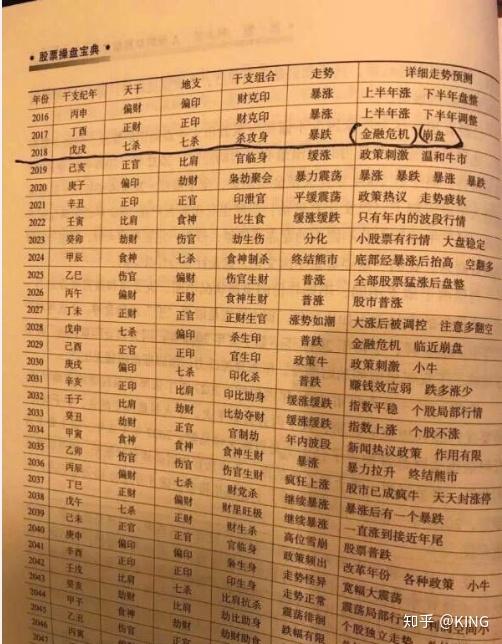 股票操盘宝典
年份 干支纪年 天干 地支 干支组合 走势 详细走势预测
2016 丙申 偏财 偏印 财克印 暴涨 上半年涨 下半年盘整
2017 丁酉 正财 正印 财克印 暴涨 上半年涨 下半年调整
2018 戊戌 七杀 七杀 杀攻身 暴跌 金融危机 崩盘
2019 己亥 正官 比肩 官临身 缓涨 政策刺激 温和牛市
2020 庚子 偏印 劫财 枭劫聚会 暴力震荡 暴涨 暴跌 暴涨 暴跌
2021 辛丑 正印 正官 印泄官 平缓震荡 政策热议 走势疲软
2022 壬寅 比肩 食神 比生食 缓涨缓跌 只有年内的波段行情
2023 癸卯 劫财 伤官 劫生伤 分化 小股票有行情 大盘稳定
2024 甲辰 食神 七杀 食神制杀 终结熊市 底部经暴涨后抬高 空翻多
2025 乙巳 伤官 偏财 伤官生财 普涨 全部股票猛涨后盘整
2026 丙午 偏财 正财 食神生财 普涨 股市普涨
2027 丁未 正财 正官 正财生官 涨势如潮 大涨后被调控 注意多翻空
2028 戊申 七杀 偏印 杀生印 普跌 金融危机 临近崩盘
2029 己酉 正官 正印 官生印 政策牛 政策刺激 小牛
2030 庚戌 偏印 七杀 印化杀 普跌 赚钱效应弱 跌多涨少
2031 辛亥 正印 比肩 印比助身 缓涨缓跌 指数平稳 个股局部行情
2032 壬子 比肩 劫财 比劫夺财 缓涨缓跌 指数上涨 个股不涨
2033 癸丑 劫财 正官 官制劫 年内波段 新闻热议政策 作用有限
2034 甲寅 食神 食神 食神生财 暴涨 暴力拉升 终结熊市
2035 乙卯 伤官 伤官 伤官生财 疯狂上涨 股市已成疯牛 天天封涨停
2036 丙辰 偏财 七杀 财党杀 继续暴涨 暴涨后有一个暴跌
2037 丁巳 正财 偏财 财星旺极 继续暴涨 一直涨到接近年尾
2038 戊午 七杀 正财 财生杀 高位雪崩 股票普跌
2039 己未 正官 正官 官临身 政策频出 改革年份 各种政策 小牛
2040 庚申 偏印 偏印 枭生身 走势怪异 宽幅大震荡
2041 辛酉 正印 正印 印生身 走势正常 震荡局部行
2042 壬戌 比肩 七杀 比肩抗杀 震荡徘徊
2043 癸亥 劫财 比肩 比劫助身 跌幅有限 个股独立走
2044 甲子 食神 劫财
2045
2046
2047
知乎 @KING